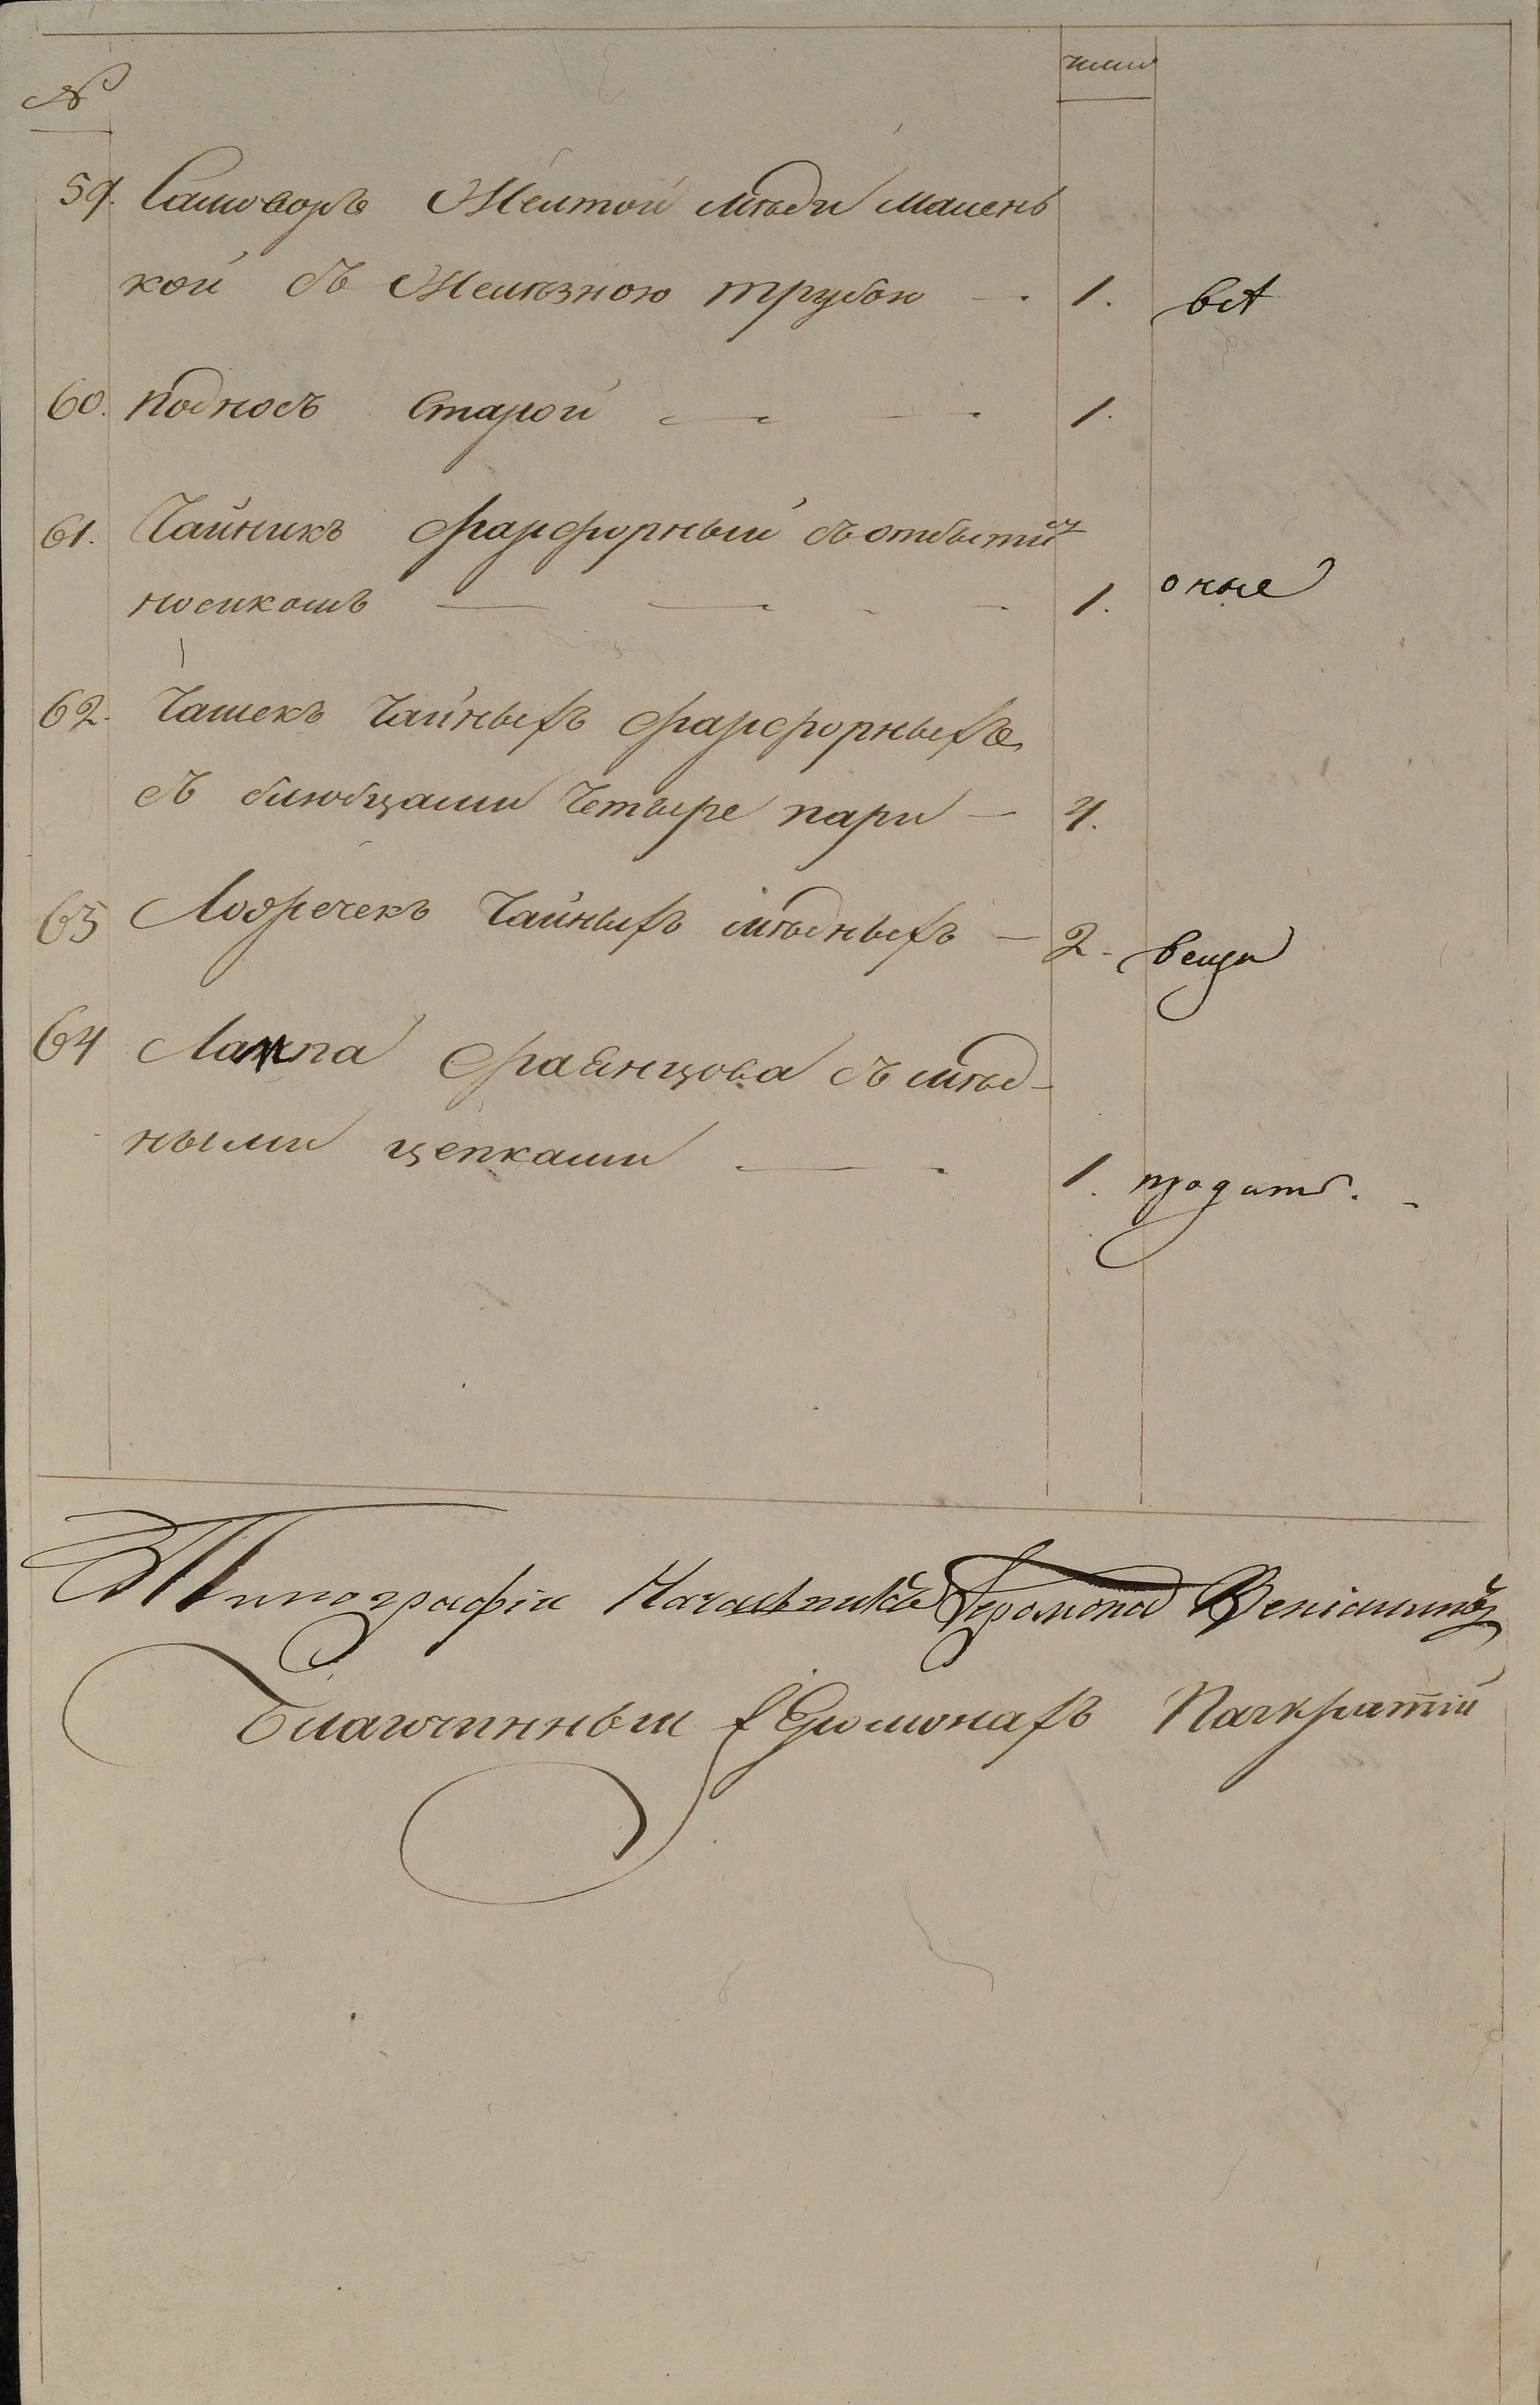 № число
59. Самоваръ Желтой мѣди мален
кой съ Желѣзною трубою — 1. всѣ
60. подносъ Старой — 1.
61. Чайникъ фарфорный съ отбитымъ
носикомъ — 1. оные
62. Чашекъ Чайныхъ фарфорныхъ
съ блюдцами Четыре пары — 4.
63 Ложечекъ Чайныхъ мѣдныхъ — 2. вещи
64 Лампа фаянцова съ мѣд-
ными цепками — 1. продать.
Типографіи Начальникъ Іеромонах Веніаминъ
Благочинный Іеромонахъ Панкратій